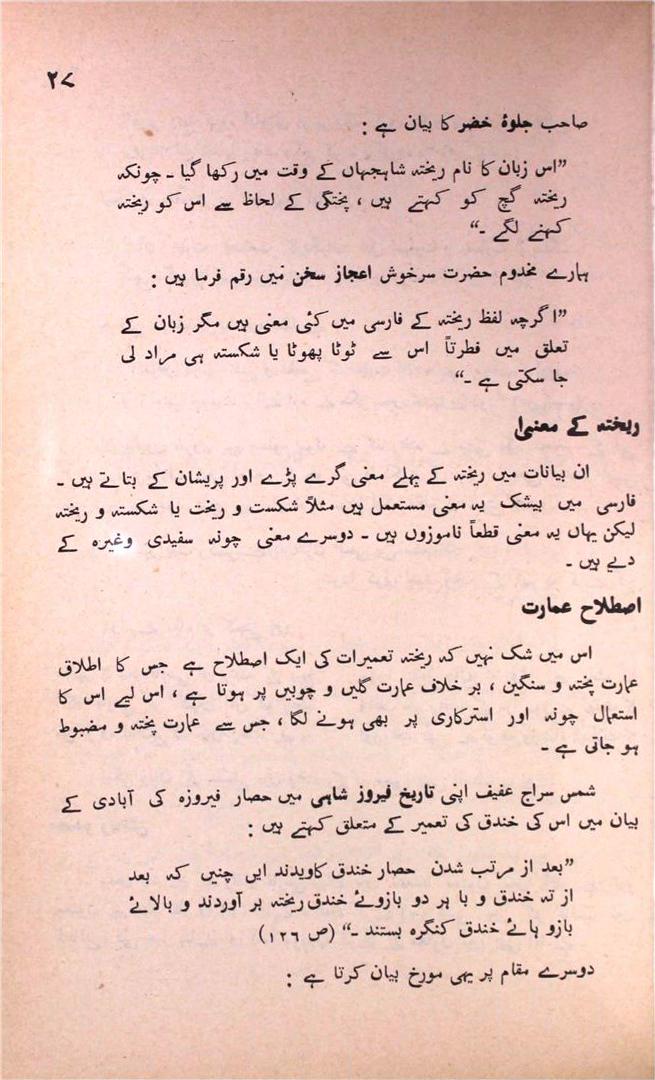 ۲۷
صاحب جلوۂ خضر کا بیان ہے :
”اس زبان کا نام ریختہ شاہجہاں کے وقت میں رکھا گیا ۔ چونکہ
ریختہ گچ کو کہتے ہیں ، پختگی کے لحاظ سے اس کو ریختہ
کہنے لگے ۔“
ہمارے مخدوم حضرت سرخوش اعجاز سخن میں رقم فرما ہیں :
”اگرچہ لفظ ریختہ کے فارسی میں کئی معنی ہیں مگر زبان کے
تعلق میں فطرتاً اس سے ٹوٹا پھوٹا یا شکستہ ہی مراد لی
جا سکتی ہے ۔“
ریختہ کے معنی
ان بیانات میں ریختہ کے پہلے معنی گرے پڑے اور پریشان کے بتاتے ہیں ۔
فارسی میں بیشک یہ معنی مستعمل ہیں مثلاً شکست و ریخت یا شکستہ و ریختہ
لیکن یہاں یہ معنی قطعاً ناموزوں ہیں ۔ دوسرے معنی چونہ سفیدی وغیرہ کے
دیے ہیں ۔
اصطلاح عمارت
اس میں شک نہیں کہ ریختہ تعمیرات کی ایک اصطلاح ہے جس کا اطلاق
عمارت پختہ و سنگین ، بر خلاف عمارت گلیں و چوبیں پر ہوتا ہے ، اس لیے اس کا
استعمال چونہ اور استرکاری پر بھی ہونے لگا ، جس سے عمارت پختہ و مضبوط
ہو جاتی ہے ۔
شمس سراج عفیف اپنی تاریخ فیروز شاہی میں حصار فیروزہ کی آبادی کے
بیان میں اس کی خندق کی تعمیر کے متعلق کہتے ہیں :
”بعد از مرتب شدن حصار خندق کاویدند ایں چنیں کہ بعد
از تہ خندق و با ہر دو بازوئے خندق ریختہ بر آوردند و بالائے
بازو ہائے خندق کنگرہ بستند ۔“ (ص ۱۲۶)
دوسرے مقام پر یہی مورخ بیان کرتا ہے :